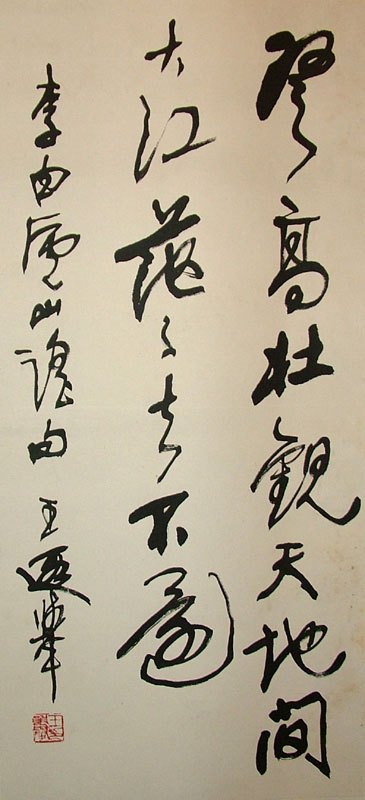 登高壮觀天地間
大江茫々去不還
李白廬山謡句 王遐舉